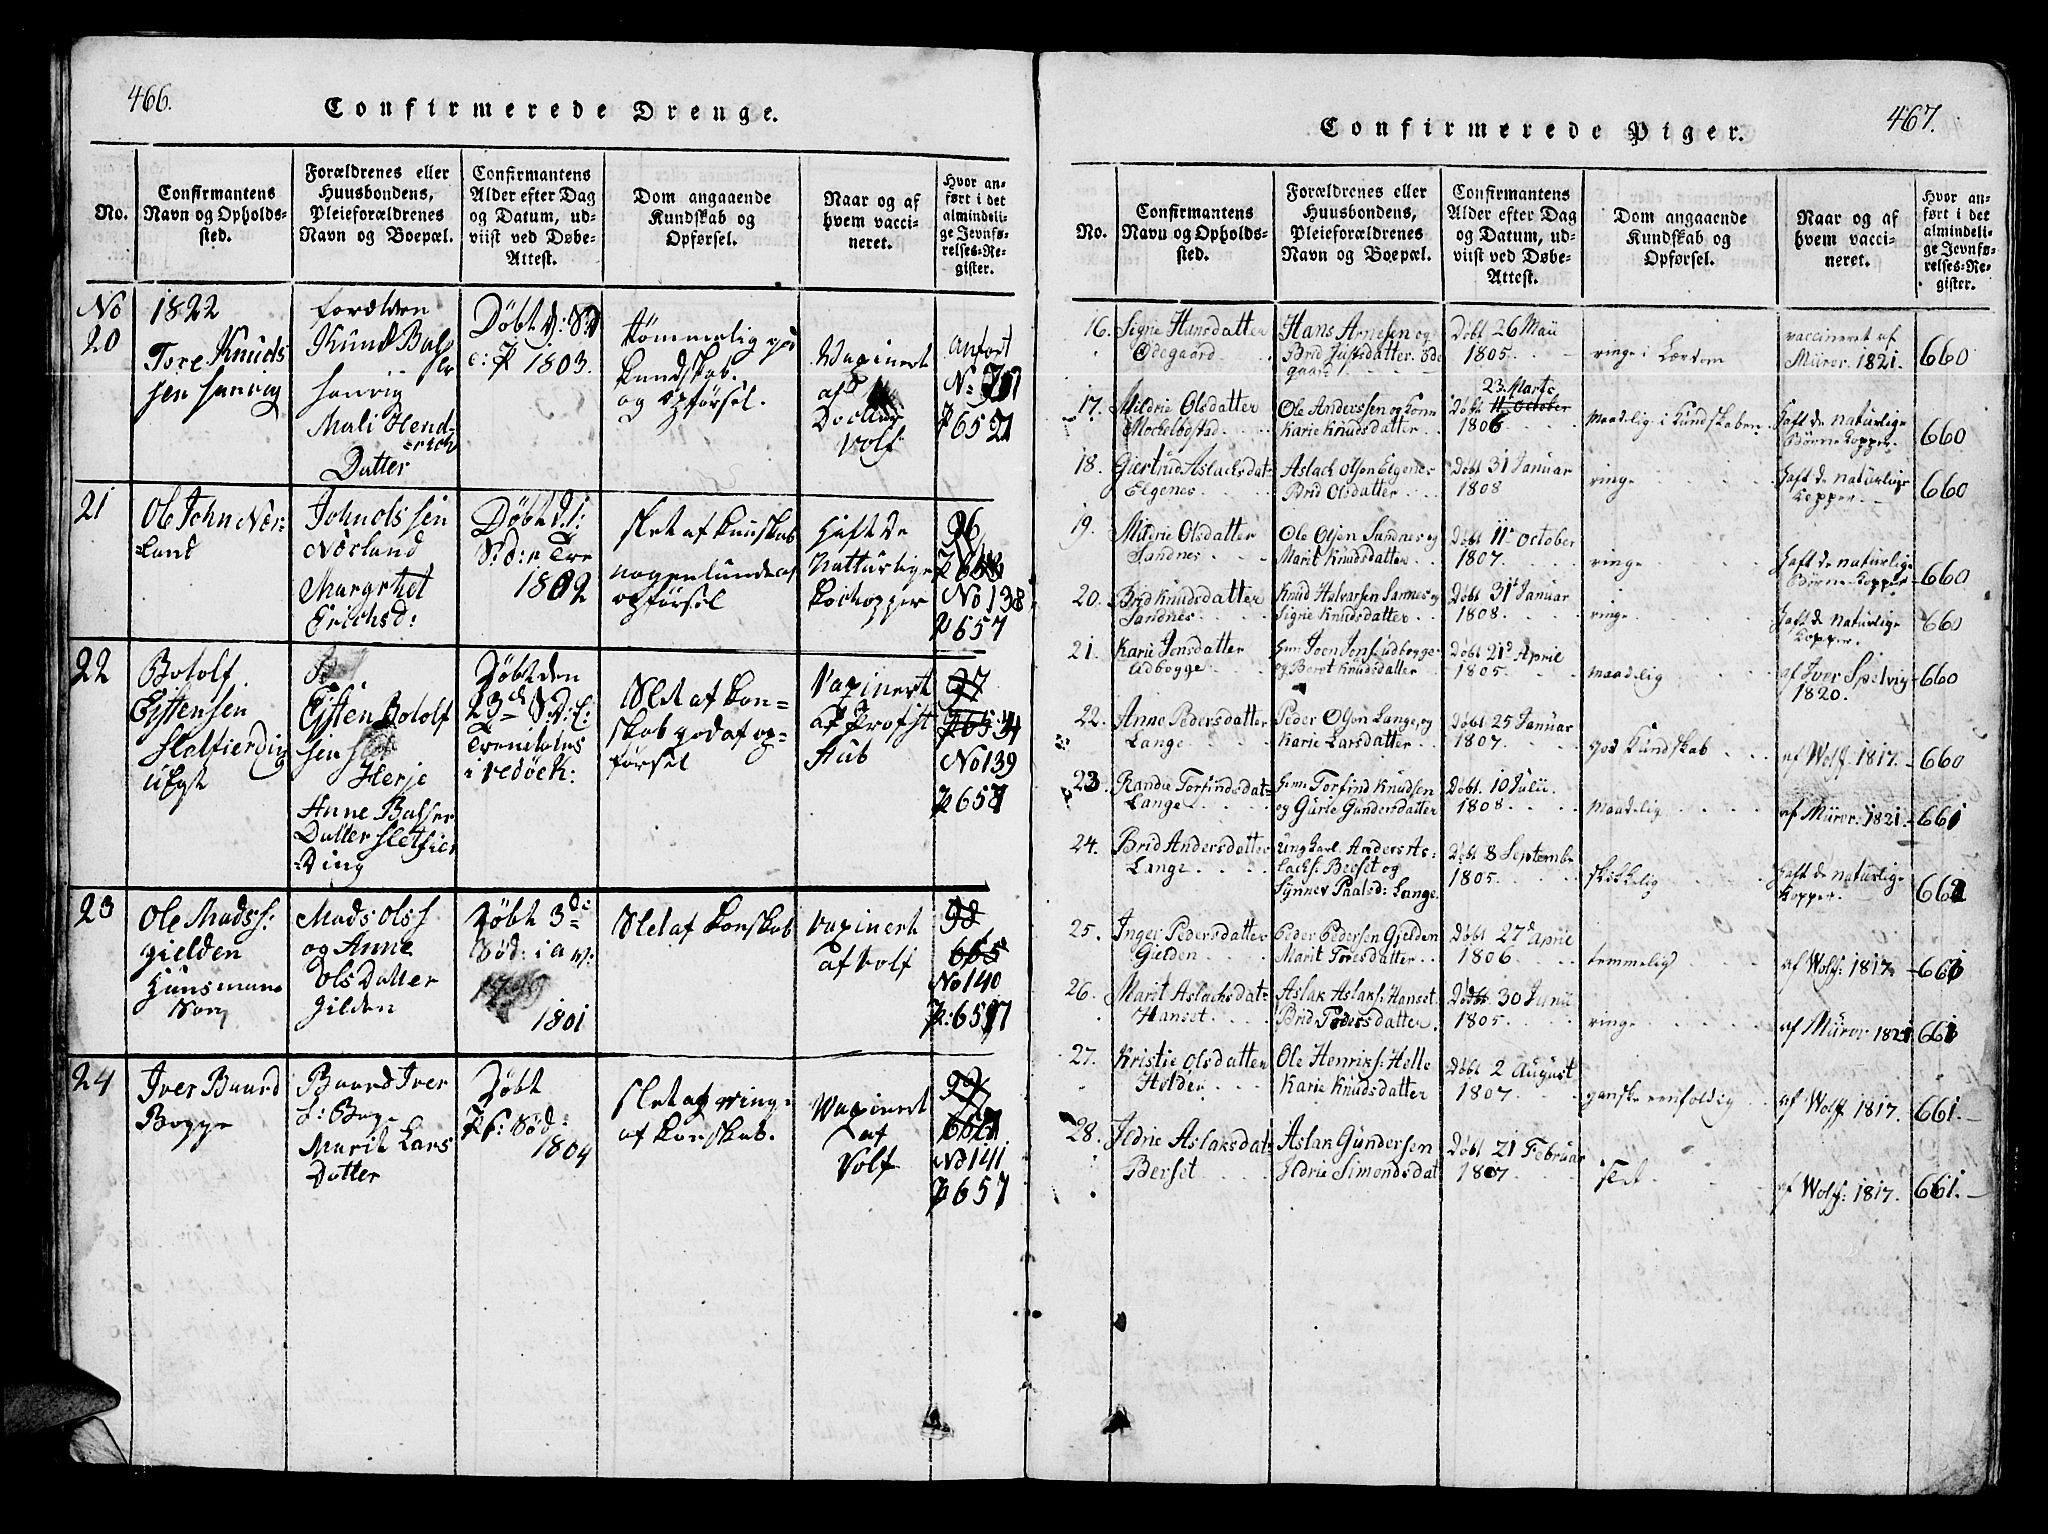 466.
Confirmerede Drenge.
No.
Confirmantens
Navn og Opholds-
sted.
Forældrenes eller
Huusbondens,
Pleieforældrenes
Navn og Boepæl.
Confirmantens
Alder efter Dag
og Datum, ud-
viist ved Døbe-
Attest.
Dom angaaende
Kundskab og
Opførsel.
Naar og af
hvem vacci-
neret.
Hvor an-
ført i det
almindeli-
ge Jevnfø-
relses-Re-
gister.
No
20
1822
Tore Knuds
sen
forælden
Knud
Mali Hend-
erich
Datter
1803.
kundskab.
og opførsel.
Vaxinert
af
Volf
anført
652
21
Ole John Nør-
=land
John Ols sen
Nørland
Margrhet
Erichsd:
1802
slet af kunskab
opførsel
haft de
Natturlige
kockopper
96
No 138
P 657
22
Botolf
Eystensen
Eysten Botolf
sen
Herje
Anne Balser
Datter
=ding
Døbt den
23de
slet af kon-
skab god af op-
førsel
Vaxinert
af Profst
Aub
97
No 139
P 657
23
Ole Madss:
gielden
Huusmans
Søn
Mads Olss
og Anne
Ols Datter
Gilden
Døbt 3de
1801
slet af konskab
Vaxinert
af Volf
98
665
No 140
P: 657
24
Iver Baard
Bogge
Baard Iver
s: Bogge
Marit Lars
Datter
Døbt
1804
af konskab.
Vaxinert
af
Volf
99
No 141
P 657
467.
Confirmerede Piger.
No.
Confirmantens
Navn og Opholds-
sted.
Forældrenes eller
Huusbondens,
Pleieforældrenes
Navn og Boepæl.
Confirmantens
Alder efter Dag
og Datum, ud-
viist ved Døbe-
Attest.
Dom angaaende
Kundskab og
Opførsel.
Naar og af
hvem vacci-
neret.
Hvor an-
ført i det
almindeli-
ge Jevnfø-
relses-Re-
gister.
16.
Sigrie Hansdatter
Ødegaard
Hans Arnesen og
Brid Justsdatter. Øde
gaard
Døbt 26 Maii
1805.
ringe i Lærdom
vaccineret af
Mürer. 1821.
660
17.
Mildrie Olsdatter
Mochelbostad
Ole Anderssen og Kone
Karie Knudsdatter
23. Marts
Døbt 11 October
1806
Maadelig i Kundskaben
haft de naturlige
Børne Kopper.
660
18.
Giertrud Aslachsdat-
Elgenes
Aslach Olsen Elgenes
Brid Olsdatter
Døbt 31 Januar
1808
ringe
haft de naturlige
Kopper
660
19.
Milrie Olsdatter
Sandnes
Ole Olsen Sandnes og
Marit Knudsdatter
Døbt 11te October
1807.
ringe
haft de naturlige
Børne Kopper
660
20.
Brid Knudsdatter
Sandnes
Knud Halvorsen Sannes og
Sigrie Knudsdatter
Døbt 31te Januar
1808.
ringe
haft de naturlige
Kopper.
660
21.
Karie Jonsdatter
Udbøgge
Joen Jons: Udbygge
og Beret Knudsdatter
Døbt 21d April
1805.
maadelig
af Iver Spelvig
1820.
660
22.
Anne Pedersdatter
Lange
Peder Olsen Lange, og
Karie Larsdatter
Døbt 25 Januar
1807.
god Kundskab
af Wolff. 1817.
660
23
Randie Torfindsdat-
Lange
Torfind Knudsen
og Gurie Gundersdatter
Døbt. 10 Julii
1808.
Maadelig
af Mürer: 1821.
661
24.
Brid Andersdatter
Lange
ung Karl Anders As-
lachs: Berset og
Synnev Paalsd: Lange
Døbt 8 Septembr
1805.
skikkelig
haft de naturlig-
Kopper.
661
25.
Inger Pedersdatter
Gielden
Peder Pedersen Gjelden
Marit Toresdatter
Døbt 27d April
1806.
temmelig
af Wolf: 1817
661
26.
Marit Aslachsdat-
Hanset
Aslak Aslaks: Hanset.
Brid Pedersdatter.
Døbt 30 Junii
1805.
ringe
af Mürer 1821
661
27.
Kristie Olsdatter
Helder
Ole Henriks: Helle
Karie Knudsdatter
Døbt 2 August
1807.
ganske eenfoldig
af Wolff 1817.
661.
28.
Ildrie Aslaksdat-
Berset
Aslak Gundersen
Ildrie Simondsdat
Døbt 21 Februar
1807
slet.
af Wolff: 1817.
661.